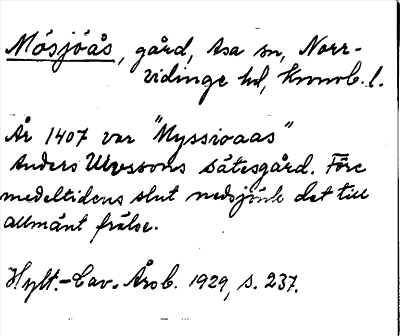 Mösjöås, gård, Asa sn, Norr-
vidinge hd, Kronob. l.
År 1407 var "Myssioaas"
Anders Ulvssons sätesgård. Före
medeltidens slut nedsjönk det till
allmänt frälse.
Hylt.-Cav. Årsb. 1929, s. 237.